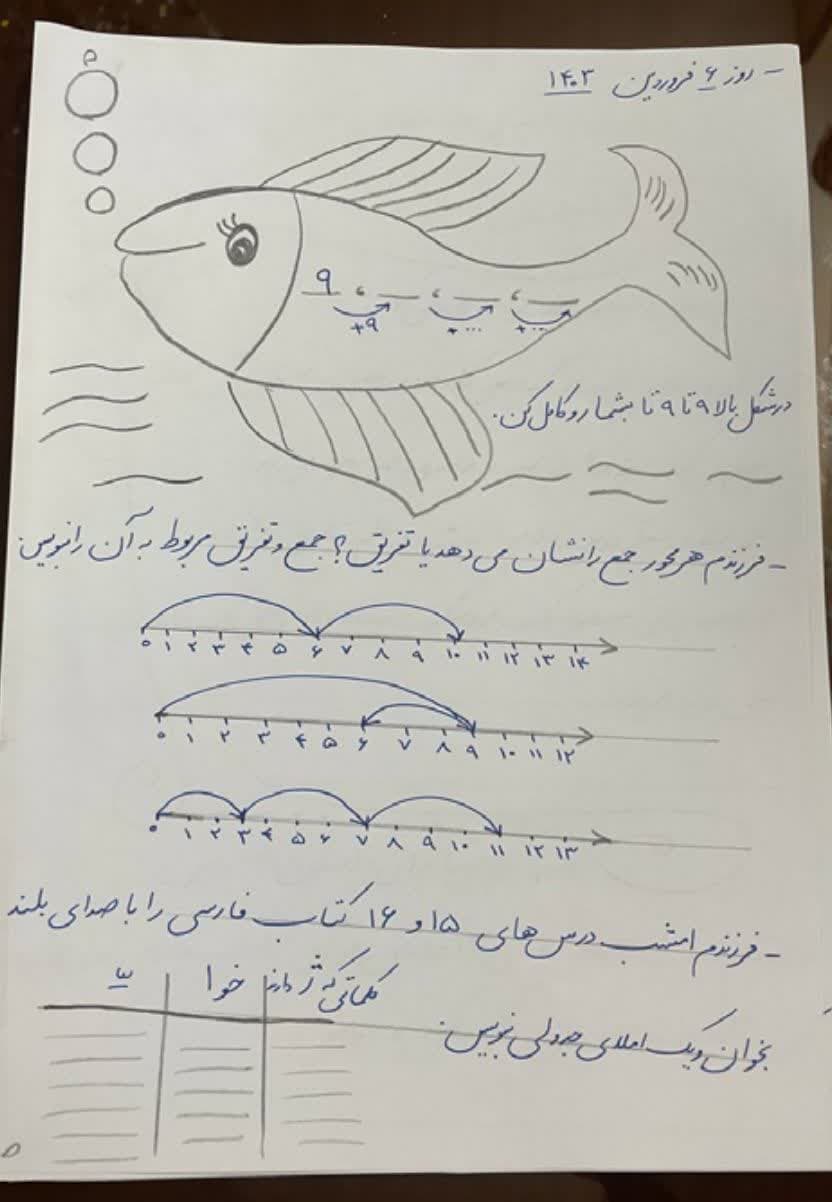 - روز ۶ فروردین ۱۴۰۳
۹ ، ــ ، ــ ، ــ
+۹ +... +...
در شکل بالا ۹ تا ۹ تا بشمار و کامل کن.
- فرزندم هر محور جمع را نشان می دهد یا تفریق؟ جمع و تفریق مربوط به آن را بنویس.
۰ ۱ ۲ ۳ ۴ ۵ ۶ ۷ ۸ ۹ ۱۰ ۱۱ ۱۲ ۱۳ ۱۴
۰ ۱ ۲ ۳ ۴ ۵ ۶ ۷ ۸ ۹ ۱۰ ۱۱ ۱۲
۰ ۱ ۲ ۳ ۴ ۵ ۶ ۷ ۸ ۹ ۱۰ ۱۱ ۱۲ ۱۳
- فرزندم امشب درس های ۱۵ و ۱۶ کتاب فارسی را با صدای بلند
بخوان و یک املای جدولی بنویس.
کلماتی که ژ دارند خوا
۵